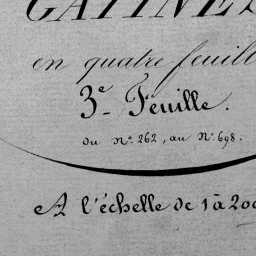 GATINE
en quatre feuill
3e Feuille.
du No. 262, au No. 698.
A l'échelle de 1 à 200